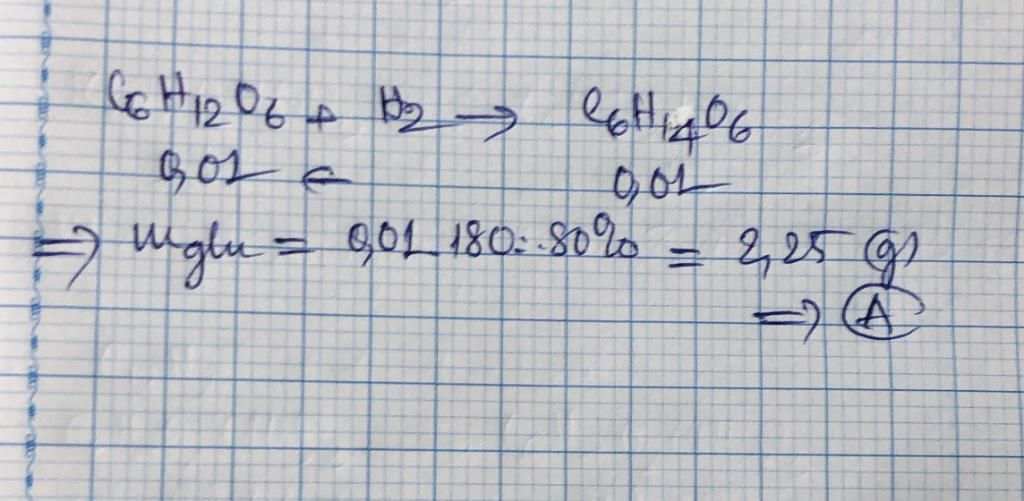 C6H12O6 + H2 → C6H14O6
0,01 ← 0,01
⇒ mglu = 0,01 180 : 80% = 2,25 (g)
⇒ A